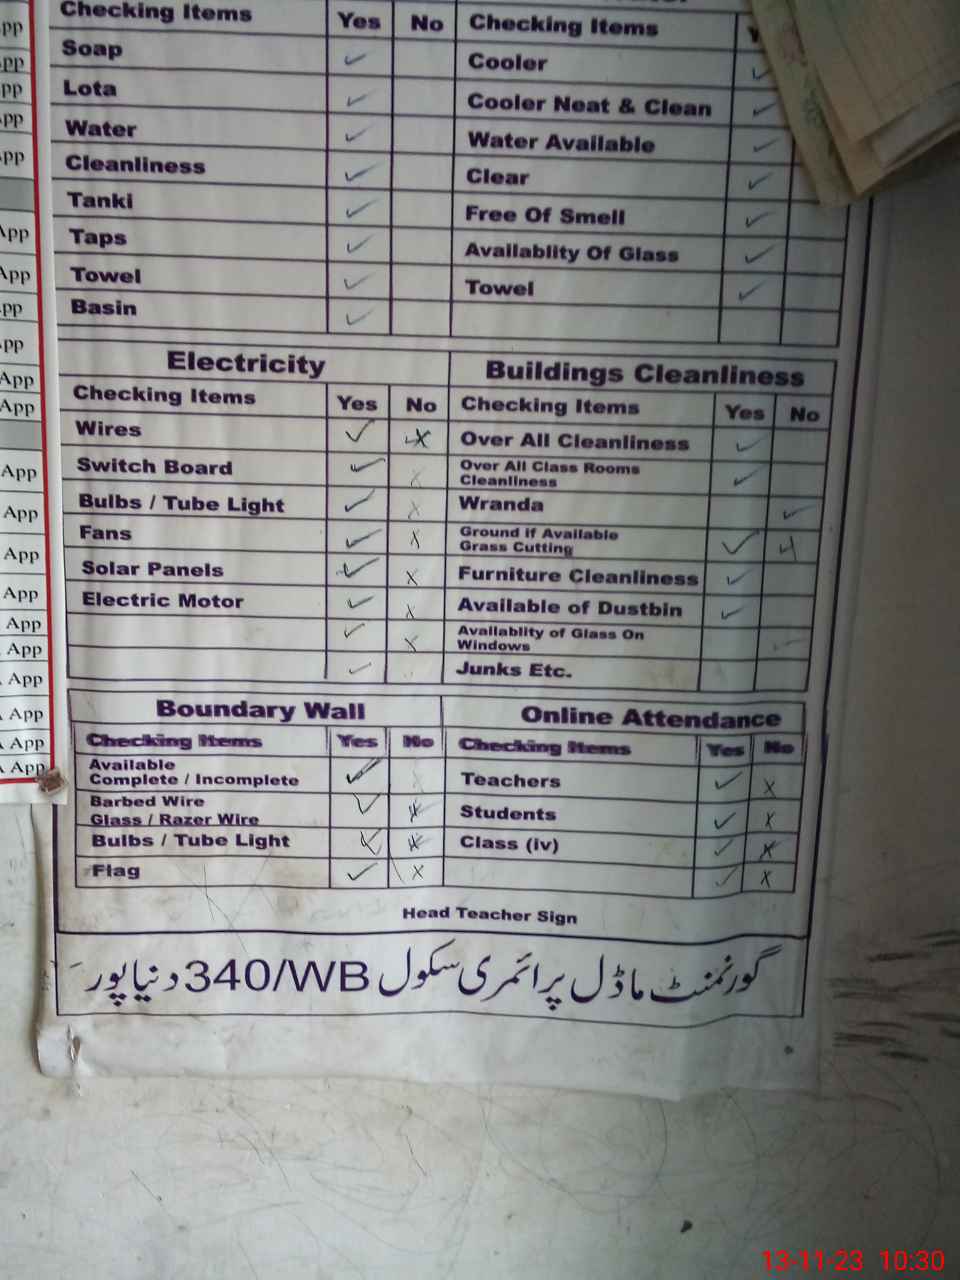 Checking Items Yes No Checking Items
Soap ✓ Cooler ✓
Lota ✓ Cooler Neat & Clean ✓
Water ✓ Water Available ✓
Cleanliness ✓ Clear ✓
Tanki ✓ Free Of Smell ✓
Taps ✓ Availablity Of Glass ✓
Towel ✓ Towel ✓
Basin ✓
Electricity Buildings Cleanliness
Checking Items Yes No Checking Items Yes No
Wires ✓ x Over All Cleanliness ✓
Switch Board ✓ x Over All Class Rooms
Cleanliness ✓
Bulbs / Tube Light ✓ x Wranda ✓
Fans ✓ x Ground if Available
Grass Cutting ✓
Solar Panels ✓ x Furniture Cleanliness ✓
Electric Motor ✓ x Available of Dustbin ✓
✓ x Availablity of Glass On
Windows ✓
✓ Junks Etc.
Boundary Wall Online Attendance
Checking Items Yes No Checking Items Yes No
Available
Complete / Incomplete ✓ Teachers ✓ x
Barbed Wire
Glass / Razer Wire ✓ x Students ✓ x
Bulbs / Tube Light ✓ x Class (iv) ✓ x
Flag ✓ x ✓ x
Head Teacher Sign
گورنمنٹ ماڈل پرائمری سکول 340/WB دنیاپور
App
App
App
App
App
App
App
App
App
App
App
App
App
App
13-11-23 10:30